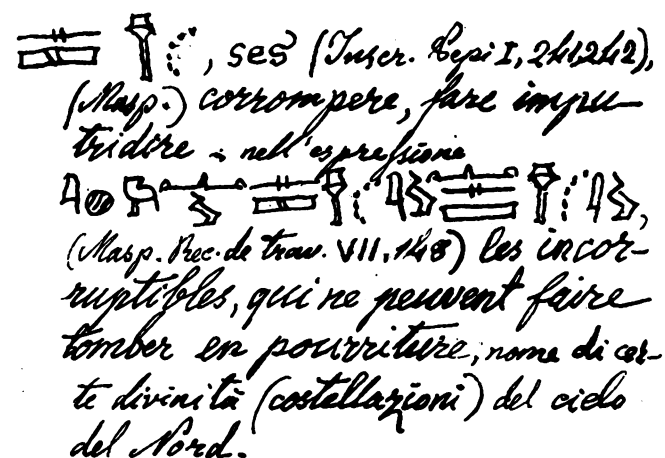 , ses (Inscr. Pepi I, 241, 242),
(Masp.) corrompere, fare impu-
tridire; nell'espressione
,
(Masp. Rec. de trav. VII, 148) les incor-
ruptibles, qui ne peuvent faire
tomber en pourriture, nome di cer-
te divinità (costellazioni) del cielo
del Nord.